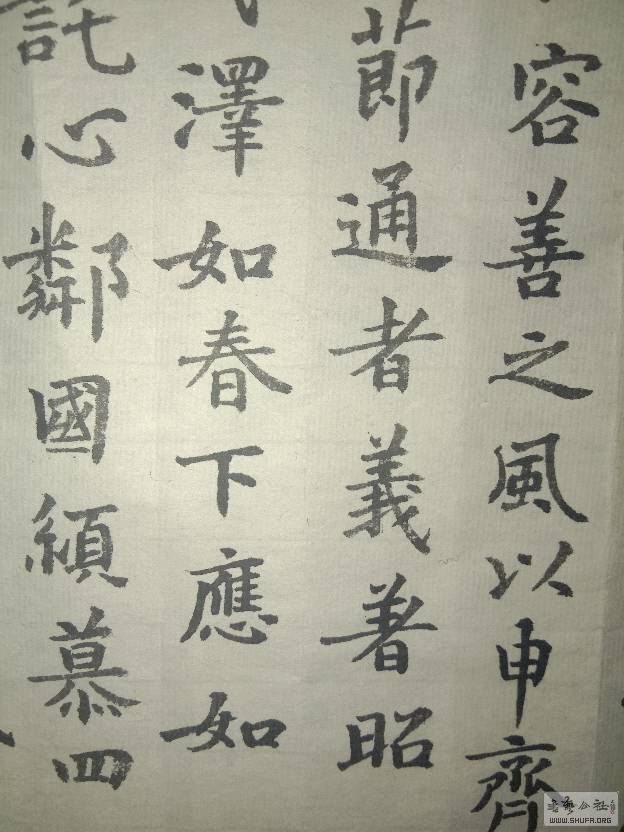 容善之風以申齊
節通者義著昭
澤如春下應如
託心鄰國慕四
書藝公社
WWW.SHUFA.ORG